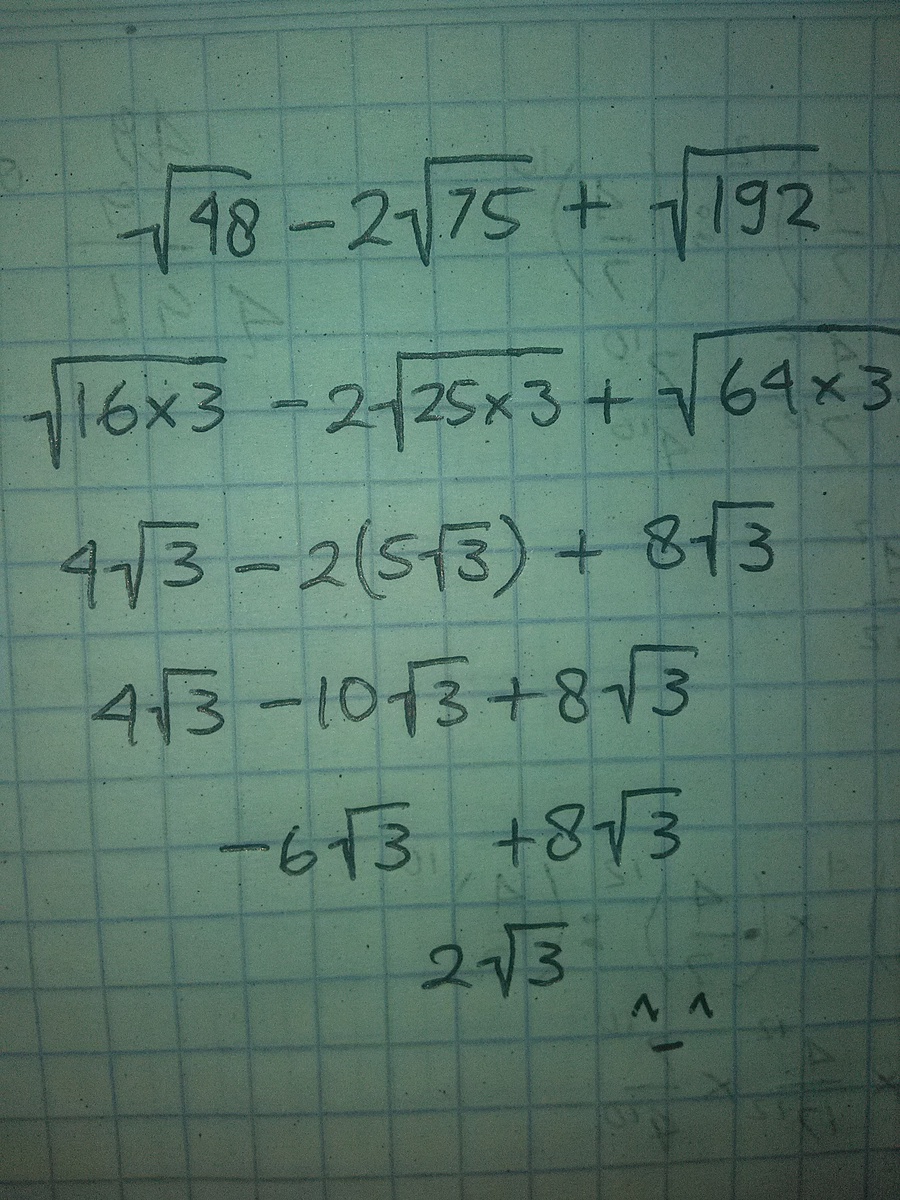 √48 − 2√75 + √192
√16×3 − 2√25×3 + √64×3
4√3 − 2(5√3) + 8√3
4√3 − 10√3 + 8√3
−6√3 + 8√3
2√3